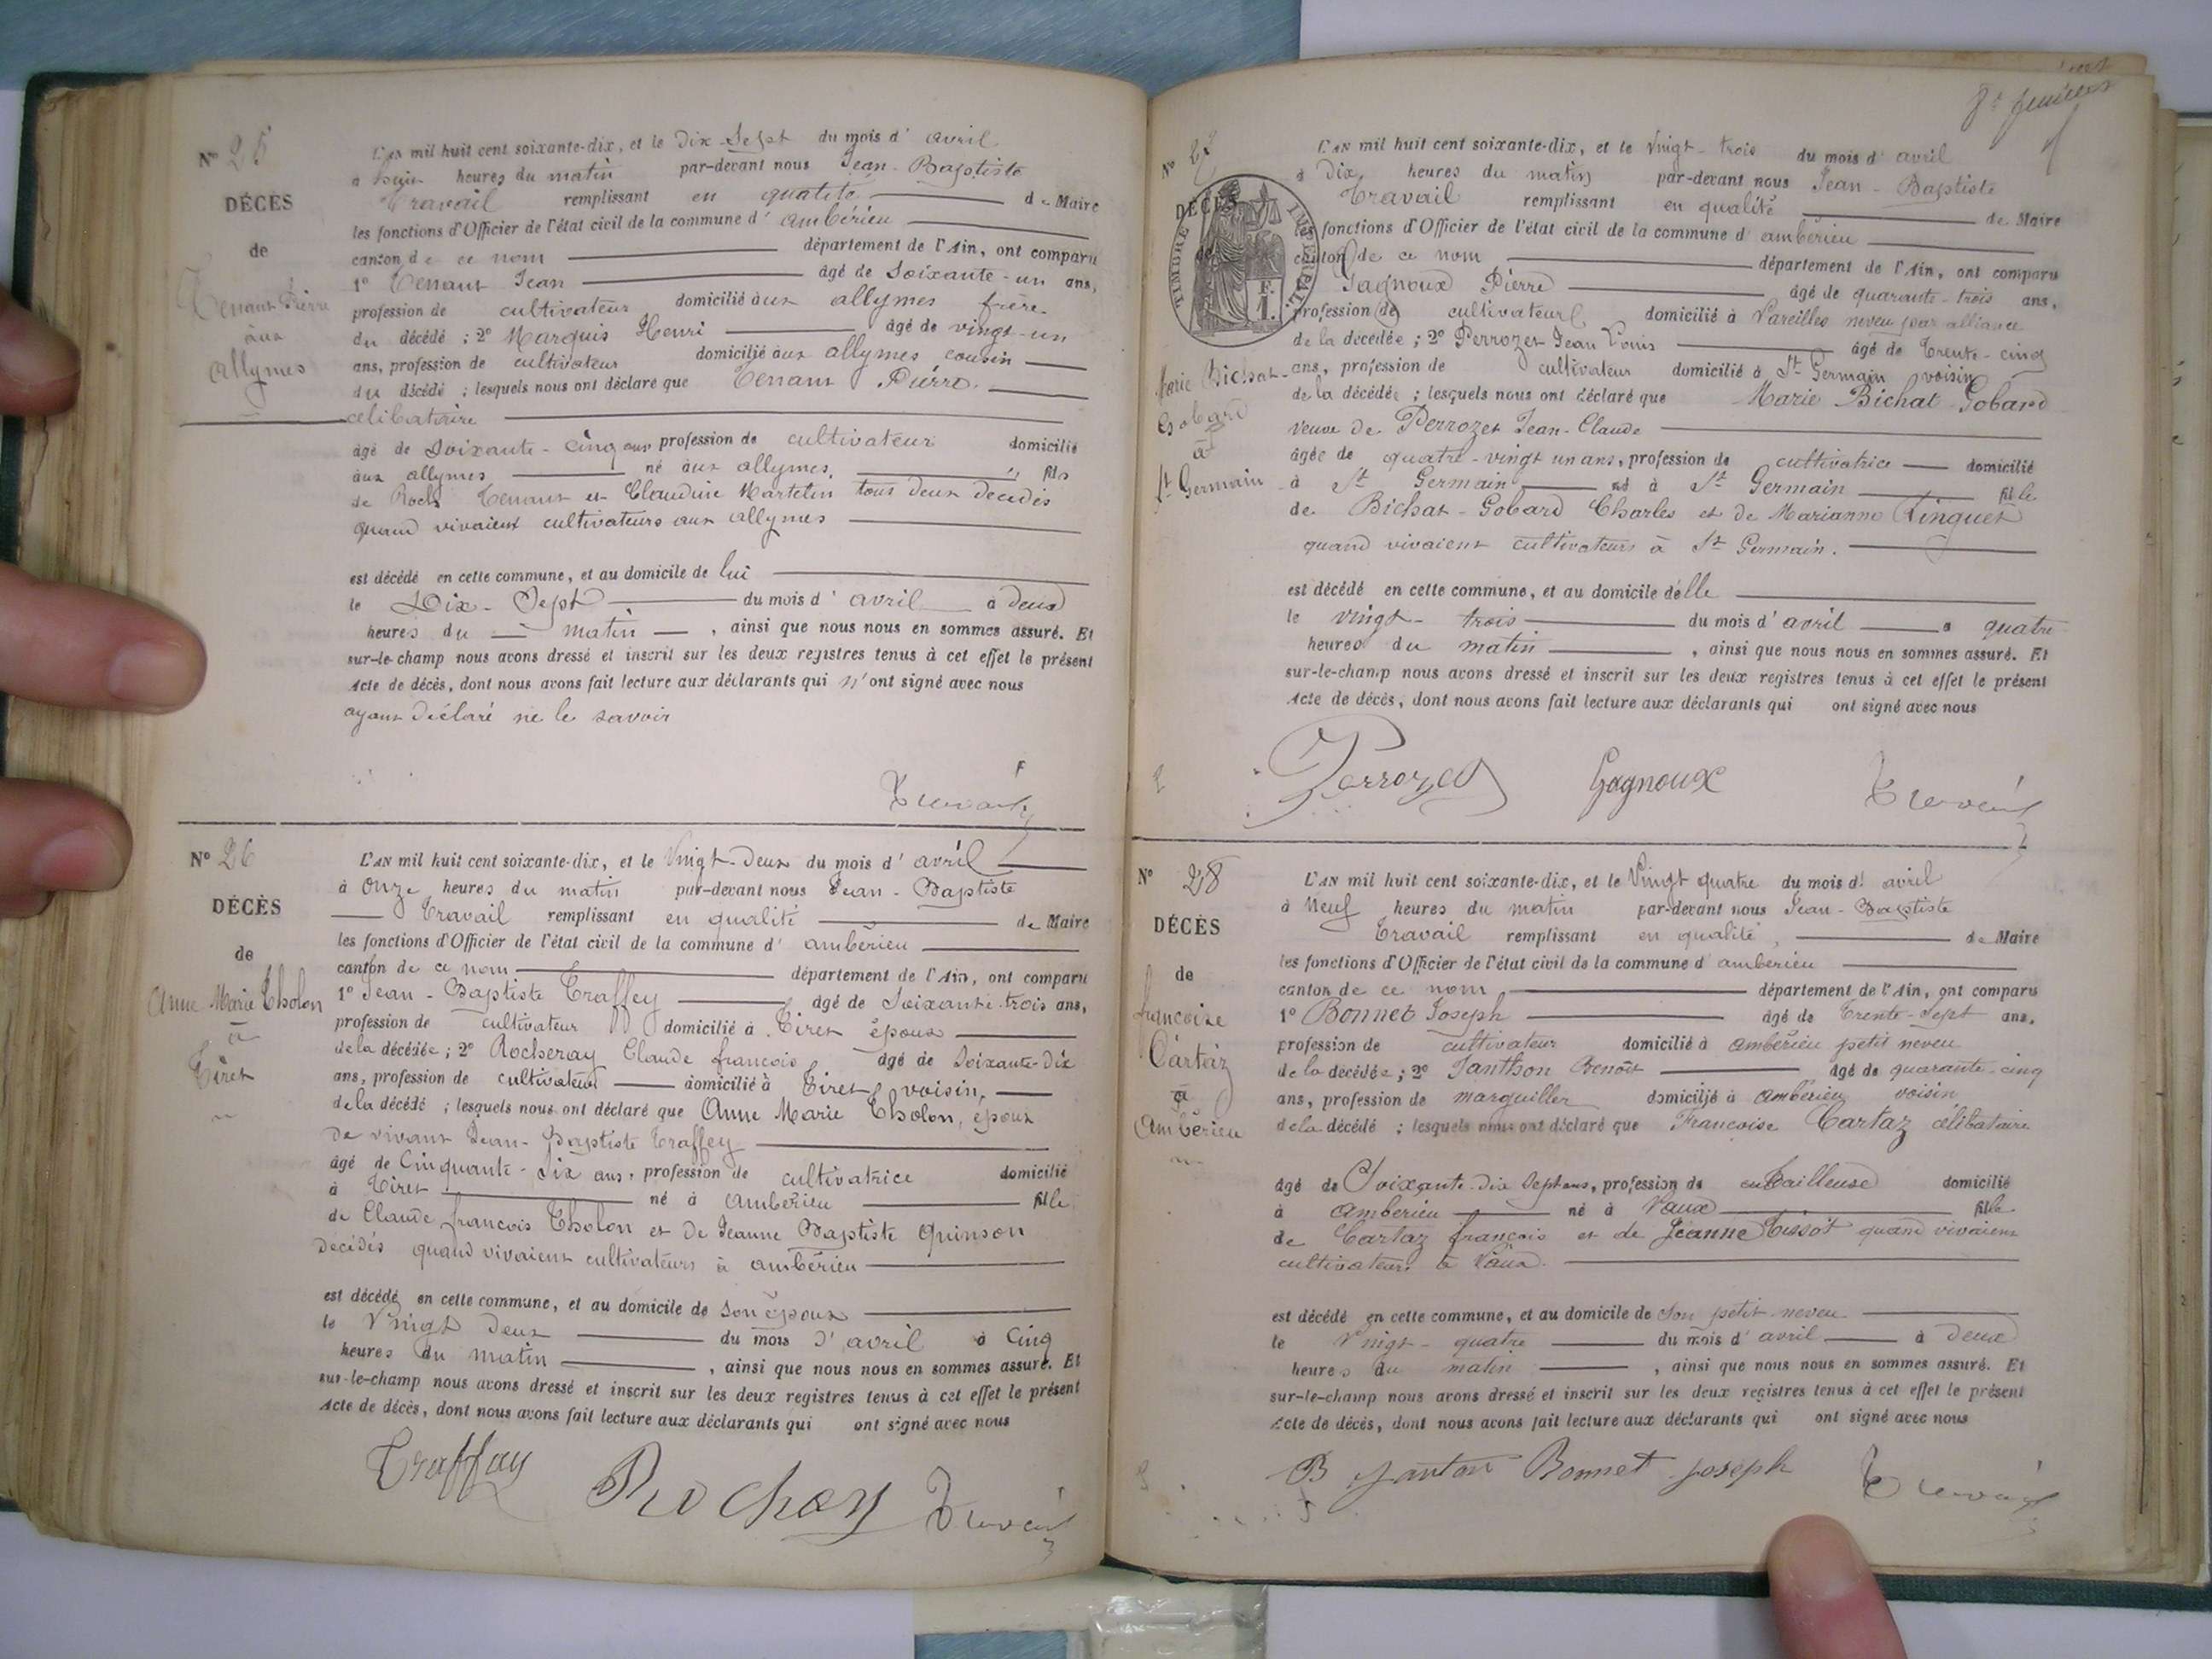 N° 25
DÉCÈS
de
Tenant Pierre
aux
allymes
L'AN mil huit cent soixante-dix, et le Dix-Sept du mois d' avril
à huit heures du matin par-devant nous Jean-Baptiste
Travail remplissant en qualité de Maire
les fonctions d'Officier de l'état civil de la commune d' ambérieu
canton de ce nom département de l'Ain, ont comparu
1° Tenant Jean âgé de Soixante-un ans,
profession de cultivateur domicilié aux allymes frère
du décédé ; 2° Marquis Henri âgé de vingt-un
ans, profession de cultivateur domicilié aux allymes cousin
du décédé ; lesquels nous ont déclaré que Tenant Pierre
célibataire
âgé de Soixante-cinq ans profession de cultivateur domicilié
aux allymes né aux allymes fils
de Roch Tenant et Claudine Martelin tous deux décédés
quand vivaient cultivateurs aux allymes
est décédé en cette commune, et au domicile de lui
le Dix-Sept du mois d' avril à deux
heures du matin , ainsi que nous nous en sommes assuré. Et
sur-le-champ nous avons dressé et inscrit sur les deux registres tenus à cet effet le présent
Acte de décès, dont nous avons fait lecture aux déclarants qui n'ont signé avec nous
ayant déclaré ne le savoir
Travail
N° 26
DÉCÈS
de
Anne Marie Tholon
à
Tiret
L'AN mil huit cent soixante-dix, et le Vingt-Deux du mois d' avril
à Onze heures du matin par-devant nous Jean-Baptiste
Travail remplissant en qualité de Maire
les fonctions d'Officier de l'état civil de la commune d' ambérieu
canton de ce nom département de l'Ain, ont comparu
1° Jean-Baptiste Traffey âgé de Soixante-trois ans,
profession de cultivateur domicilié à Tiret époux
de la décédée ; 2° Rocheray Claude françois âgé de Soixante-Dix
ans, profession de cultivateur domicilié à Tiret voisin,
de la décédé ; lesquels nous ont déclaré que Anne Marie Tholon, époux
de vivant Jean-Baptiste Traffey
âgé de Cinquante-Six ans, profession de cultivatrice domicilié
à Tiret né à Ambérieu fille
de Claude françois Tholon et de Jeanne Baptiste Quinson
décédés quand vivaient cultivateurs à ambérieu
est décédé en cette commune, et au domicile de Son époux
le Vingt Deux du mois d'avril à Cinq
heures du matin , ainsi que nous nous en sommes assuré. Et
sur-le-champ nous avons dressé et inscrit sur les deux registres tenus à cet effet le présent
Acte de décès, dont nous avons fait lecture aux déclarants qui ont signé avec nous
Traffay Rochery Travail
8e feuillet
N° 27
DÉCÈS
de
TIMBRE IMPÉRIAL
1 F.
Marie Bichat
Gobard
à
St Germain
L'AN mil huit cent soixante-dix, et le Vingt-trois du mois d' avril
à Dix heures du matin par-devant nous Jean-Baptiste
Travail remplissant en qualité de Maire
fonctions d'Officier de l'état civil de la commune d' ambérieu
canton de ce nom département de l'Ain, ont comparu
Gagnoux Pierre âgé de quarante-trois ans,
profession de cultivateur domicilié à Vareilles neveu par alliance
de la décédée ; 2° Perrozet Jean Louis âgé de Trente-cinq
ans, profession de cultivateur domicilié à St Germain voisin
de la décédée ; lesquels nous ont déclaré que Marie Bichat Gobard
veuve de Perrozet Jean-Claude
âgée de quatre-vingt un ans, profession de cultivatrice domicilié
à St Germain né à St Germain fille
de Bichat-Gobard Charles et de Marianne Linguet
quand vivaient cultivateurs à St Germain.
est décédé en cette commune, et au domicile d'elle
le vingt-trois du mois d' avril à quatre
heures du matin , ainsi que nous nous en sommes assuré. Et
sur-le-champ nous avons dressé et inscrit sur les deux registres tenus à cet effet le présent
Acte de décès, dont nous avons fait lecture aux déclarants qui ont signé avec nous
Perrozet Gagnoux Travail
N° 28
DÉCÈS
de
françoise
Cartaz
à
Ambérieu
L'AN mil huit cent soixante-dix, et le Vingt quatre du mois d' avril
à Neuf heures du matin par-devant nous Jean-Baptiste
Travail remplissant en qualité de Maire
les fonctions d'Officier de l'état civil de la commune d' ambérieu
canton de ce nom département de l'Ain, ont comparu
1° Bonnet Joseph âgé de Trente-Sept ans,
profession de cultivateur domicilié à ambérieu petit neveu
de la décédée ; 2° Janthon Benoît âgé de quarante-cinq
ans, profession de marguiller domicilié à ambérieu voisin
de la décédé ; lesquels nous ont déclaré que Françoise Cartaz célibataire
âgé de Soixante-Dix Sept ans, profession de Tailleuse domicilié
à Ambérieu né à Vaux fille
de Cartaz françois et de Jeanne Tissot quand vivaient
cultivateurs à Vaux.
est décédé en cette commune, et au domicile de Son petit-neveu
le Vingt-quatre du mois d' avril à deux
heures du matin , ainsi que nous nous en sommes assuré. Et
sur-le-champ nous avons dressé et inscrit sur les deux registres tenus à cet effet le présent
Acte de décès, dont nous avons fait lecture aux déclarants qui ont signé avec nous
B Janton Bonnet joseph Travail